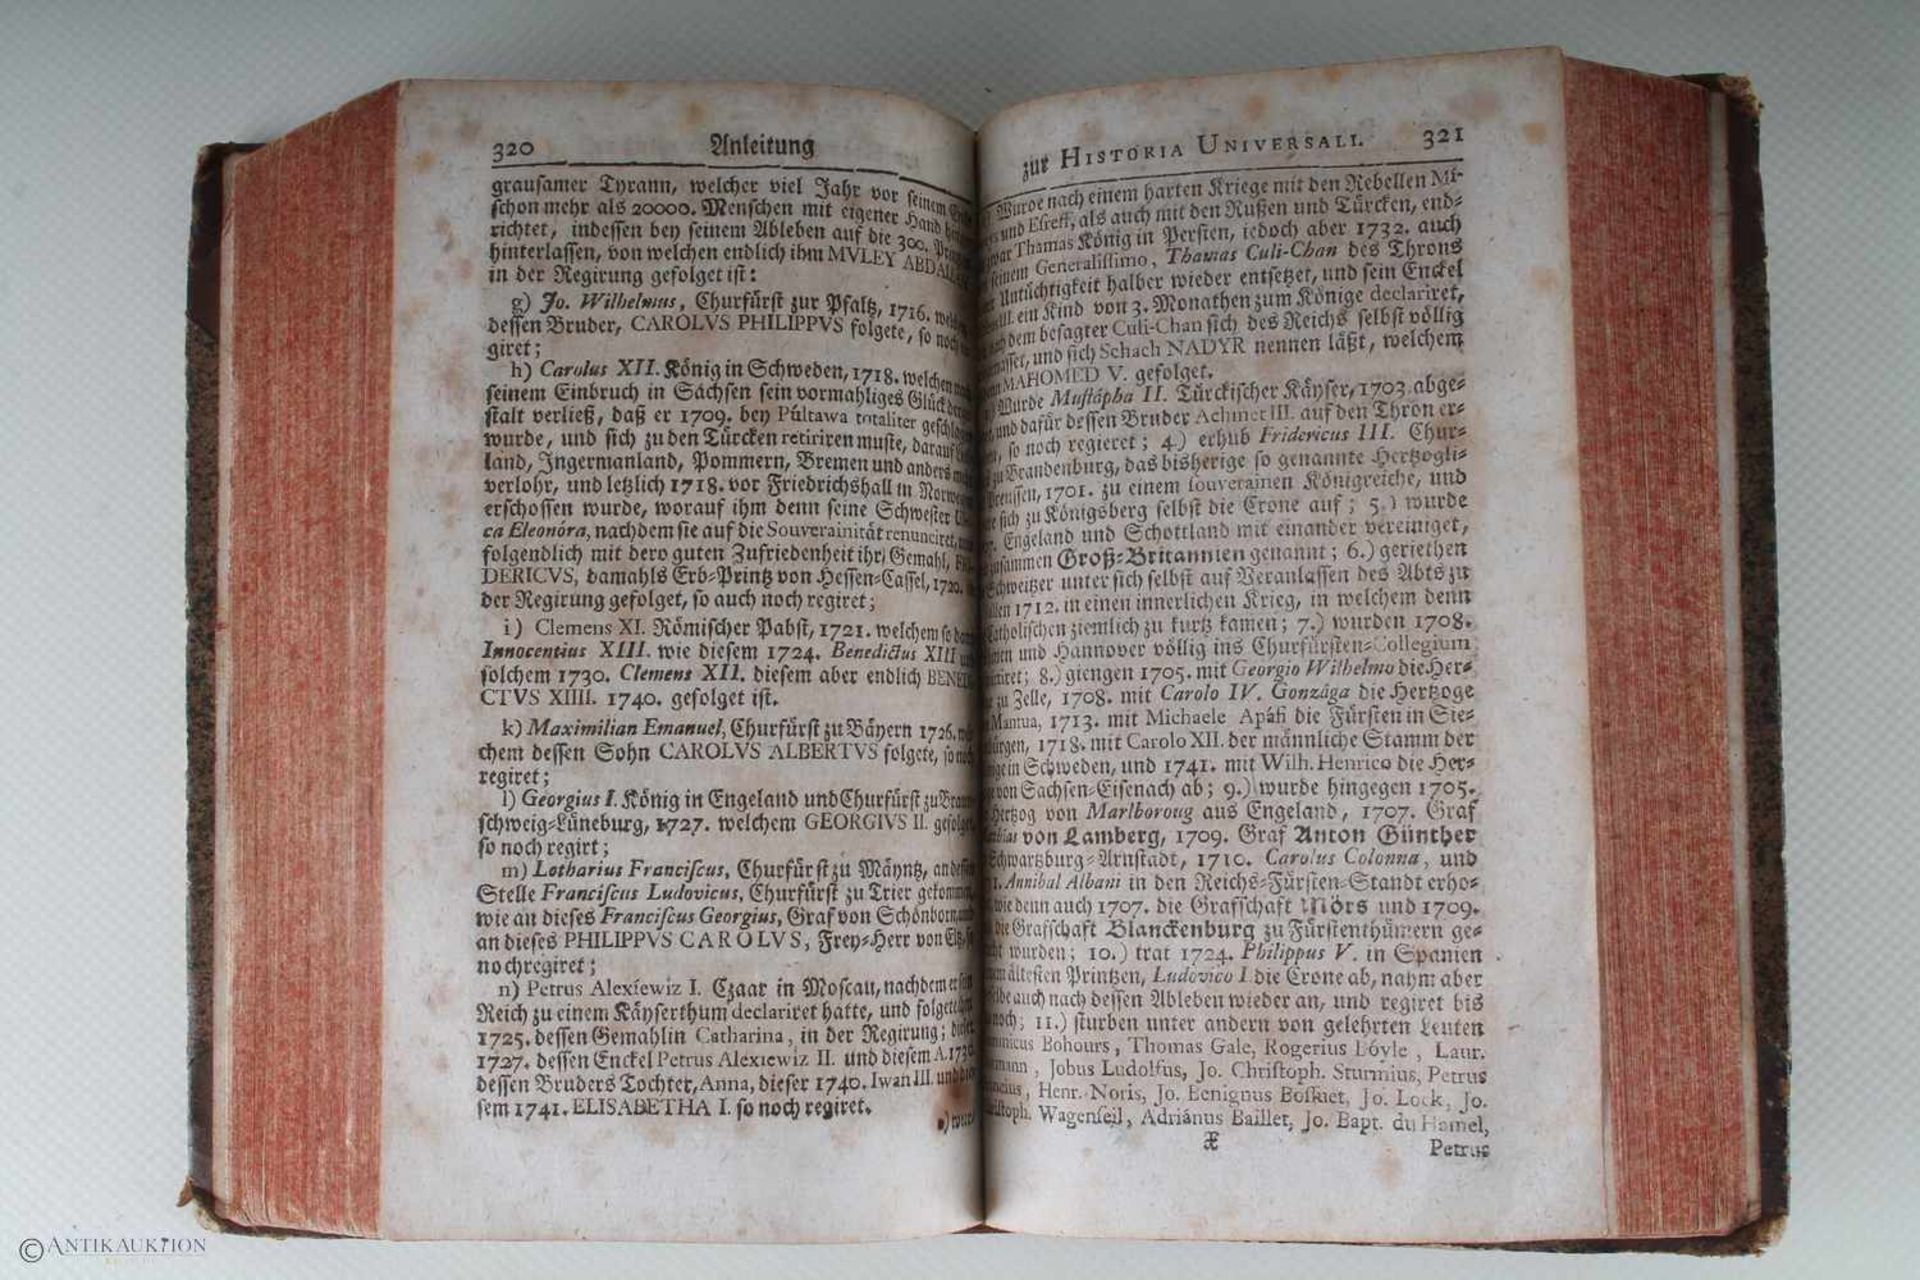 320 Anleitung
grausamer Tyrann, welcher viel Jahr vor seinem
schon mehr als 20000. Menschen mit eigener Hand
richtet, indessen bey seinem Ableben auf die 300.
hinterlassen, von welchen endlich ihm MVLEY
in der Regirung gefolget ist:
g) Jo. Wilhelmus, Churfürst zur Pfaltz, 1716.
dessen Bruder, CAROLVS PHILIPPVS folgete, so noch
giret;
h) Carolus XII. König in Schweden, 1718. welchen
seinem Einbruch in Sachsen sein vormahliges Glück
stalt verließ, daß er 1709. bey Pultawa totaliter
wurde, und sich zu den Türcken retiriren muste, darauf
land, Ingermanland, Pommern, Bremen und anders
verlohr, und letzlich 1718. vor Friedrichshall in
erschossen wurde, worauf ihm denn seine Schwester
ca Eleonóra, nachdem sie auf die Souverainität renunciret,
folgendlich mit dero guten Zufriedenheit ihr Gemahl,
DERICVS, damahls Erb-Printz von Hessen-Cassel, 1720.
der Regirung gefolget, so auch noch regiret;
i) Clemens XI. Römischer Pabst, 1721. welchem so
Innocentius XIII. wie diesem 1724. Benedictus XIII
solchem 1730. Clemens XII. diesem aber endlich
CTVS XIIII. 1740. gefolget ist.
k) Maximilian Emanuel, Churfürst zu Bäyern 1726.
chem dessen Sohn CAROLVS ALBERTVS folgete, so
regiret;
l) Georgius I. König in Engeland und Churfürst zu
schweig-Lüneburg, 1727. welchem GEORGIVS II.
so noch regirt;
m) Lotharius Franciscus, Churfürst zu Mäyntz, an
Stelle Franciscus Ludovicus, Churfürst zu Trier
wie an dieses Franciscus Georgius, Graf von Schönborn,
an dieses PHILIPPVS CAROLVS, Frey-Herr von
noch regiret;
n) Petrus Alexiewiz I. Czaar in Moscau, nachdem er
Reich zu einem Käyserthum declariret hatte, und
1725. dessen Gemahlin Catharina, in der Regirung;
1727. dessen Enckel Petrus Alexiewiz II. und diesem A. 1730
dessen Bruders Tochter, Anna, dieser 1740. Iwan III.
sem 1741. ELISABETHA I. so noch regiret.
zur HISTORIA UNIVERSALI. 321
Wurde nach einem harten Kriege mit den Rebellen Mi-
und Esreff, als auch mit den Rußen und Türcken, end-
Thamas König in Persien, iedoch aber 1732. auch
seinem Generalissimo, Thamas Culi-Chan des Throns
Untüchtigkeit halber wieder entsetzet, und sein Enckel
III. ein Kind von 3. Monathen zum Könige declariret,
dem besagter Culi-Chan sich des Reichs selbst völlig
und sich Schach NADYR nennen läßt, welchem
MAHOMED V. gefolget.
Wurde Mustápha II. Türckischer Käyser, 1703. abge-
und dafür dessen Bruder Achmet III. auf den Thron er-
so noch regieret; 4.) erhub Fridericus III. Chur-
zu Brandenburg, das bisherige so genannte Hertzogli-
1701. zu einem souverainen Königreiche, und
sich zu Königsberg selbst die Crone auf; 5.) wurde
Engeland und Schottland mit einander vereiniget,
Groß-Britannien genannt; 6.) geriethen
Schweitzer unter sich selbst auf Veranlassen des Abts zu
1712. in einen innerlichen Krieg, in welchem denn
Catholischen ziemlich zu kurtz kamen; 7.) wurden 1708.
und Hannover völlig ins Churfürsten-Collegium
8.) giengen 1705. mit Georgio Wilhelmo die Her-
zu Zelle, 1708. mit Carolo IV. Gonzága die Hertzoge
Mantua, 1713. mit Michaele Apáfi die Fürsten in Sie-
1718. mit Carolo XII. der männliche Stamm der
in Schweden, und 1741. mit Wilh. Henrico die Her-
von Sachsen-Eisenach ab; 9.) wurde hingegen 1705.
Hertzog von Marlboroug aus Engeland, 1707. Graf
von Lamberg, 1709. Graf Anton Günther
Schwartzburg-Arnstadt, 1710. Carolus Colonna, und
Annibal Albani in den Reichs-Fürsten-Standt erho-
wie denn auch 1707. die Grafschaft Mörs und 1709.
die Grafschaft Blanckenburg zu Fürstenthümern ge-
wurden; 10.) trat 1724. Philippus V. in Spanien
ältesten Printzen, Ludovico I die Crone ab, nahm aber
auch nach dessen Ableben wieder an, und regiret bis
noch; 11.) sturben unter andern von gelehrten Leuten
Bohours, Thomas Gale, Rogerius Boyle, Laur.
Jobus Ludolfus, Jo. Christoph. Sturmius, Petrus
Henr. Noris, Jo. Benignus Bossiet, Jo. Lock, Jo.
Wagenseil, Adriánus Baillet, Jo. Bapt. du Hamel,
Æ Petrus
© ANTIKAUKTION